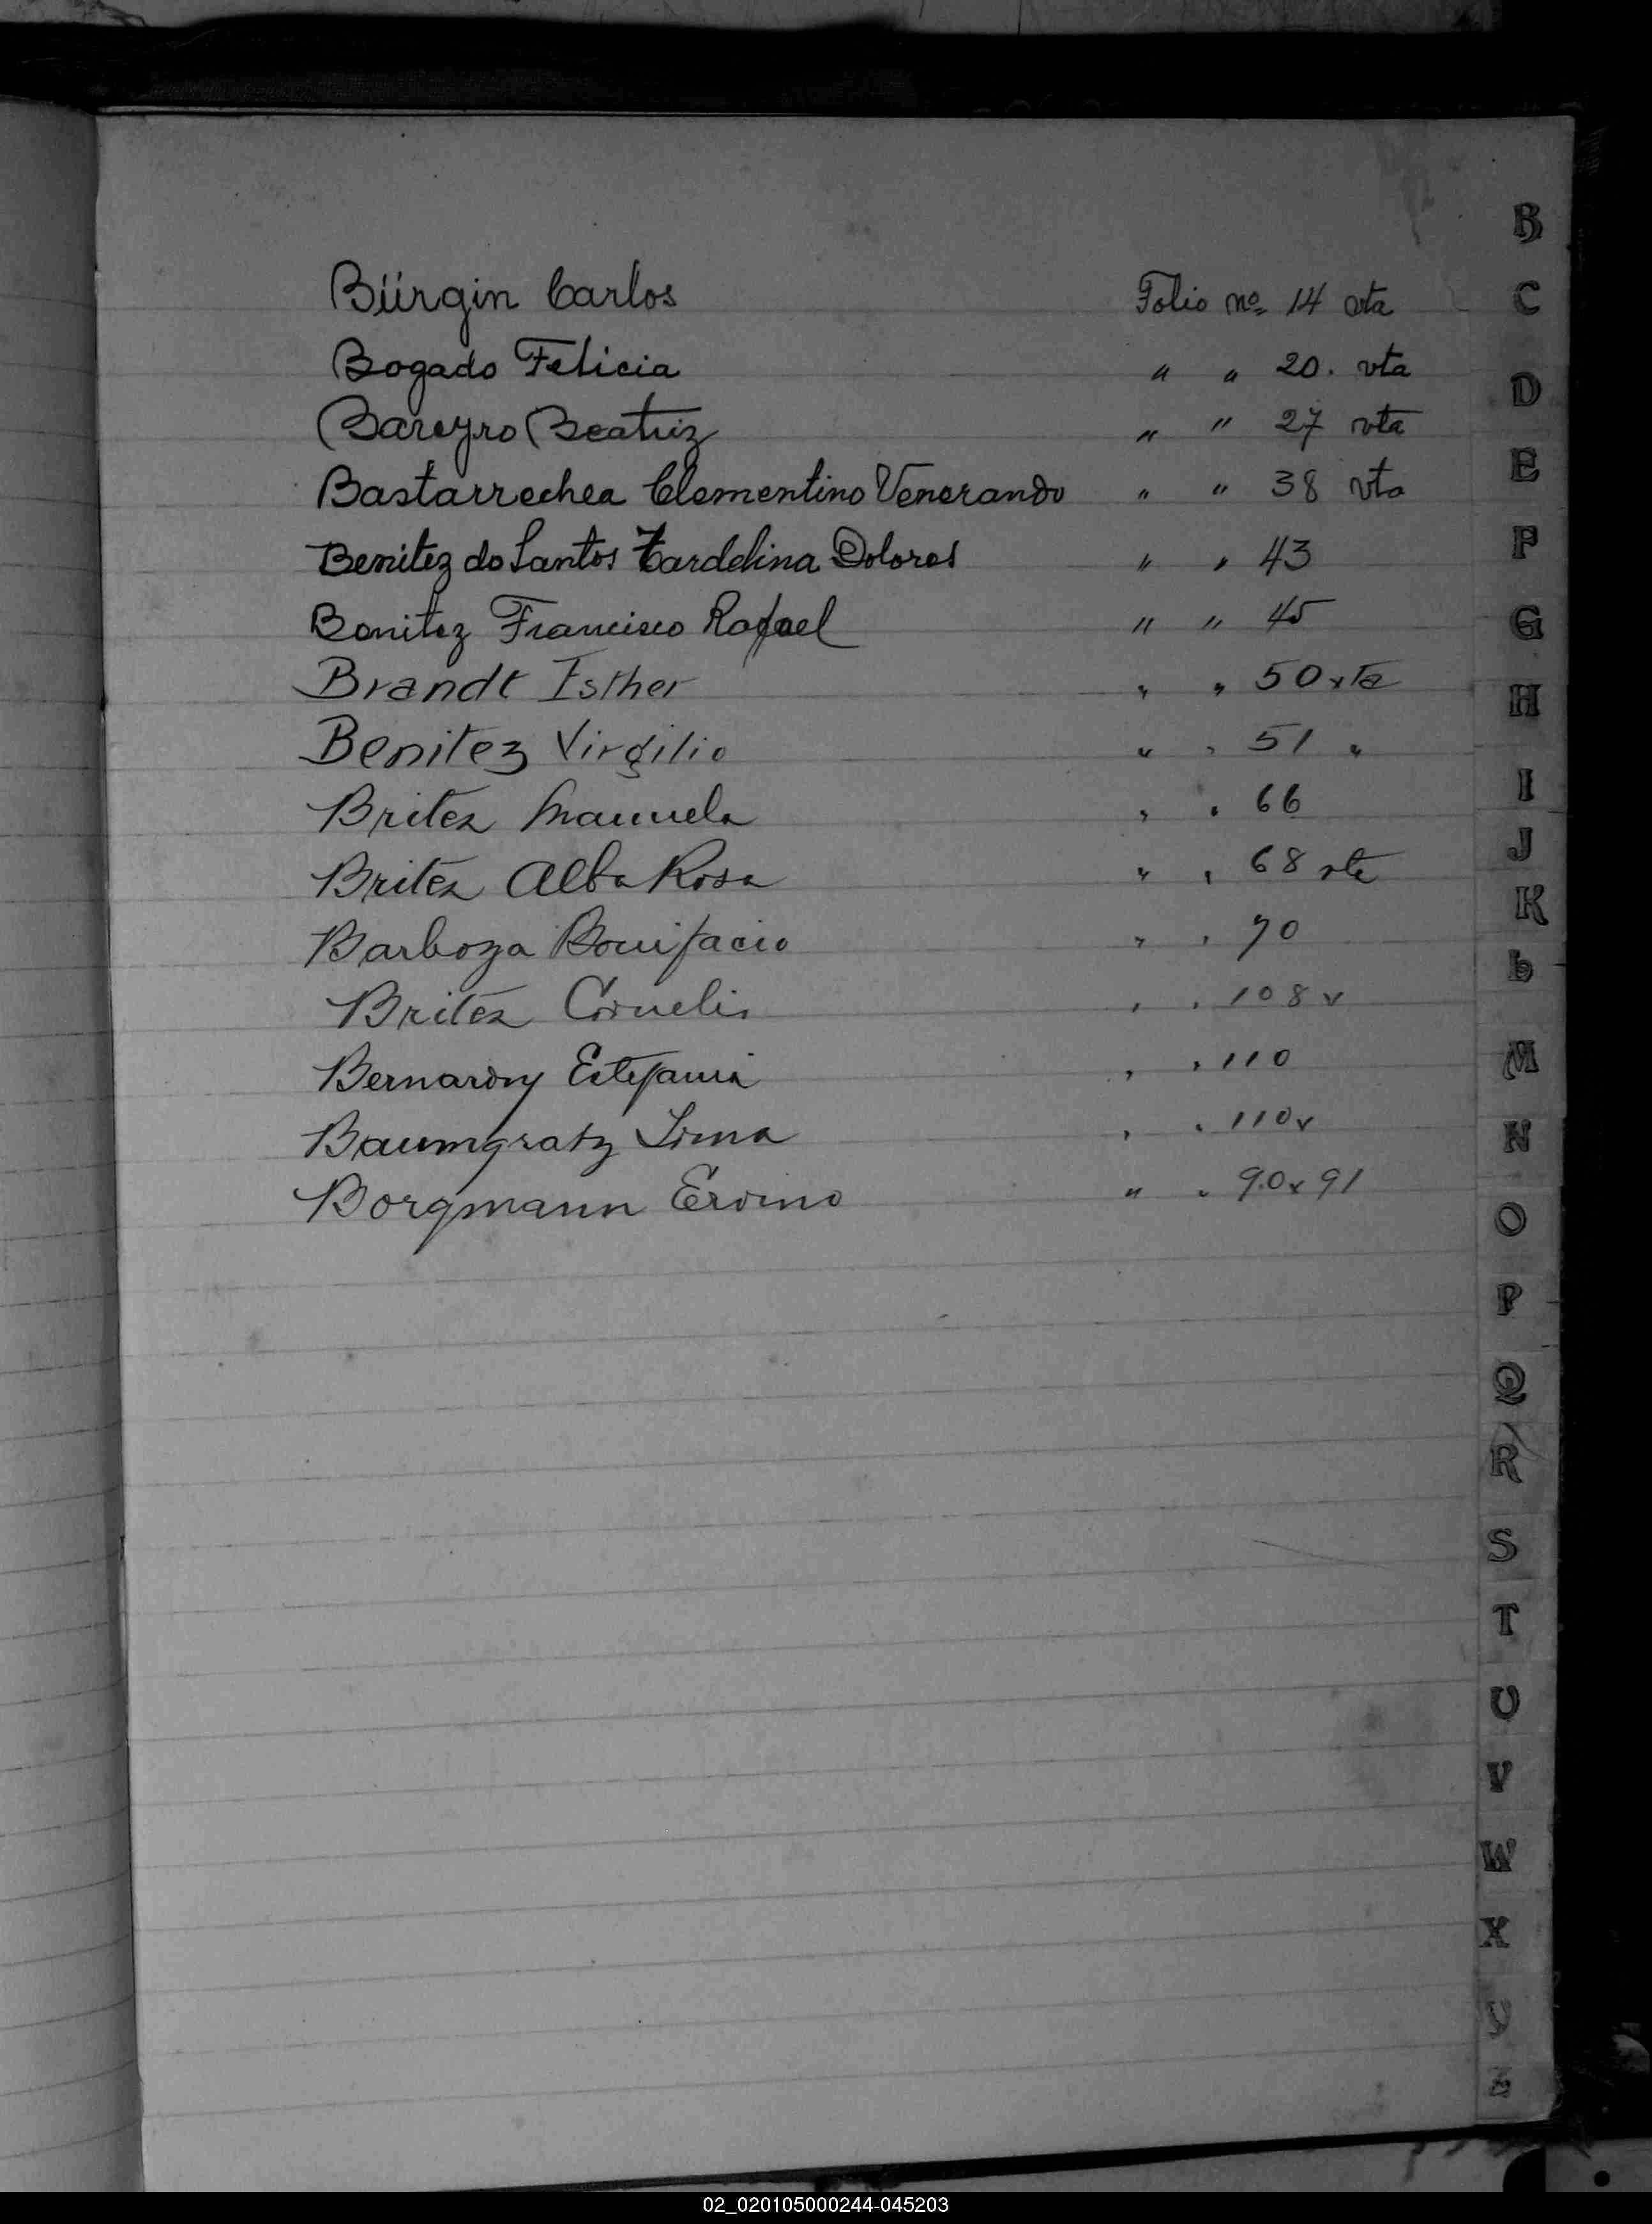 Bürgin Carlos Folio nº 14 vta
Bogado Felicia " " 20. vta
Bareyro Beatriz " " 27 vta
Bastarrechea Clementino Venerando " " 38 vta
Benitez do Santos Dolores " " 43
Benitez Francisco Rafael " " 45
Brandt Esther " " 50 vta
Benitez Virgilio " " 51 "
Britez Manuela " " 66
Britez Alba Rosa " " 68 vta
Barboza Bonifacio " " 70
Britez Cornelia " " 108 v
Bernardy Estefania " " 110
Baumgratz " " 110v
Borgmann Ervino " " 90v 91
B
C
D
E
F
G
H
I
J
K
L
M
N
O
P
Q
R
S
T
U
V
W
X
Y
Z
02_020105000244-045203